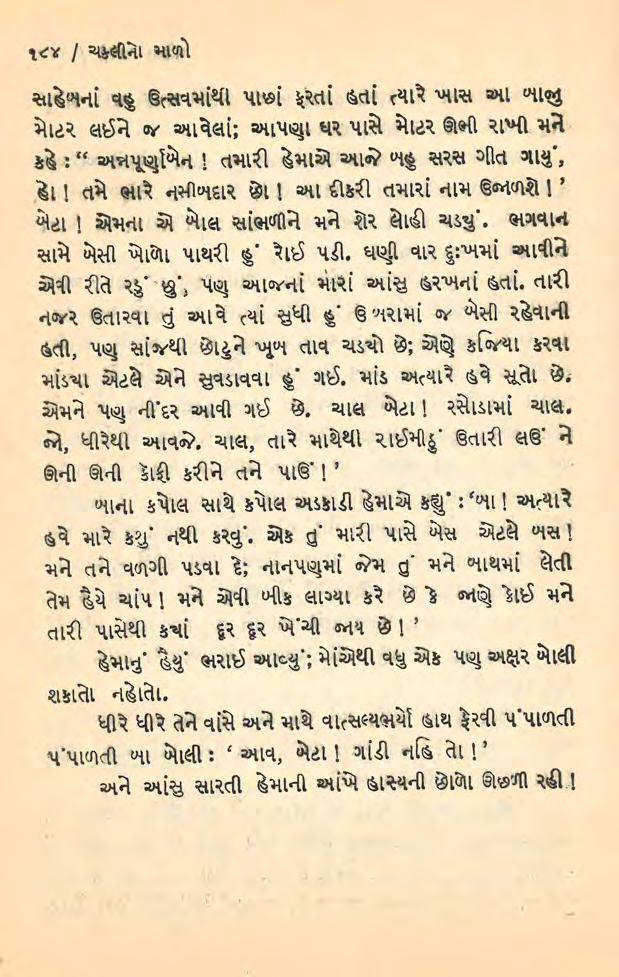 ૧૮૪ / ચકલીનો માળો
સાહેબનાં વહુ ઉત્સવમાંથી પાછાં ફરતાં હતાં ત્યારે ખાસ આ બાજુ
મોટર લઈને જ આવેલાં; આપણા ઘર પાસે મોટર ઊભી રાખી મને
કહે : “ અન્નપૂર્ણાબેન ! તમારી હેમાએ આજે બહુ સરસ ગીત ગાયું,
હો ! તમે ભારે નસીબદાર છો ! આ દીકરી તમારાં નામ ઉજાળશે ! ’
બેટા ! એમના એ બોલ સાંભળીને મને શેર લોહી ચડ્યું. ભગવાન
સામે બેસી ખોળો પાથરી હું રોઈ પડી. ઘણી વાર દુઃખમાં આવીને
એવી રીતે રડું છું, પણ આજનાં મારાં આંસુ હરખનાં હતાં. તારી
નજર ઉતારવા તું આવે ત્યાં સુધી હું ઉંબરામાં જ બેસી રહેવાની
હતી, પણ સાંજથી છોટુને ખૂબ તાવ ચડ્યો છે; એણે કજિયા કરવા
માંડ્યા એટલે એને સુવડાવવા હું ગઈ. માંડ અત્યારે હવે સૂતો છે.
એમને પણ નીંદર આવી ગઈ છે. ચાલ બેટા ! રસોડામાં ચાલ.
જો, ધીરેથી આવજે. ચાલ, તારે માથેથી રાઈમીઠું ઉતારી લઉં ને
ઊની ઊની કૉફી કરીને તને પાઉં ! ’
બાના કપોલ સાથે કપોલ અડકાડી હેમાએ કહ્યું : ‘બા ! અત્યારે
હવે મારે કશું નથી કરવું. એક તું મારી પાસે બેસ એટલે બસ !
મને તને વળગી પડવા દે; નાનપણમાં જેમ તું મને બાથમાં લેતી
તેમ હૈયે ચાંપ ! મને એવી બીક લાગ્યા કરે છે કે જાણે કોઈ મને
તારી પાસેથી ક્યાં દૂર દૂર ખેંચી જાય છે ! ’
હેમાનું હૈયું ભરાઈ આવ્યું; મોંએથી વધુ એક પણ અક્ષર બોલી
શકાતો નહોતો.
ધીરે ધીરે તેને વાંસે અને માથે વાત્સલ્યભર્યો હાથ ફેરવી પંપાળતી
પંપાળતી બા બોલી : ‘ આવ, બેટા ! ગાંડી નહિ તો !’
અને આંસુ સારતી હેમાની આંખે હાસ્યની છોળો ઊછળી રહી !